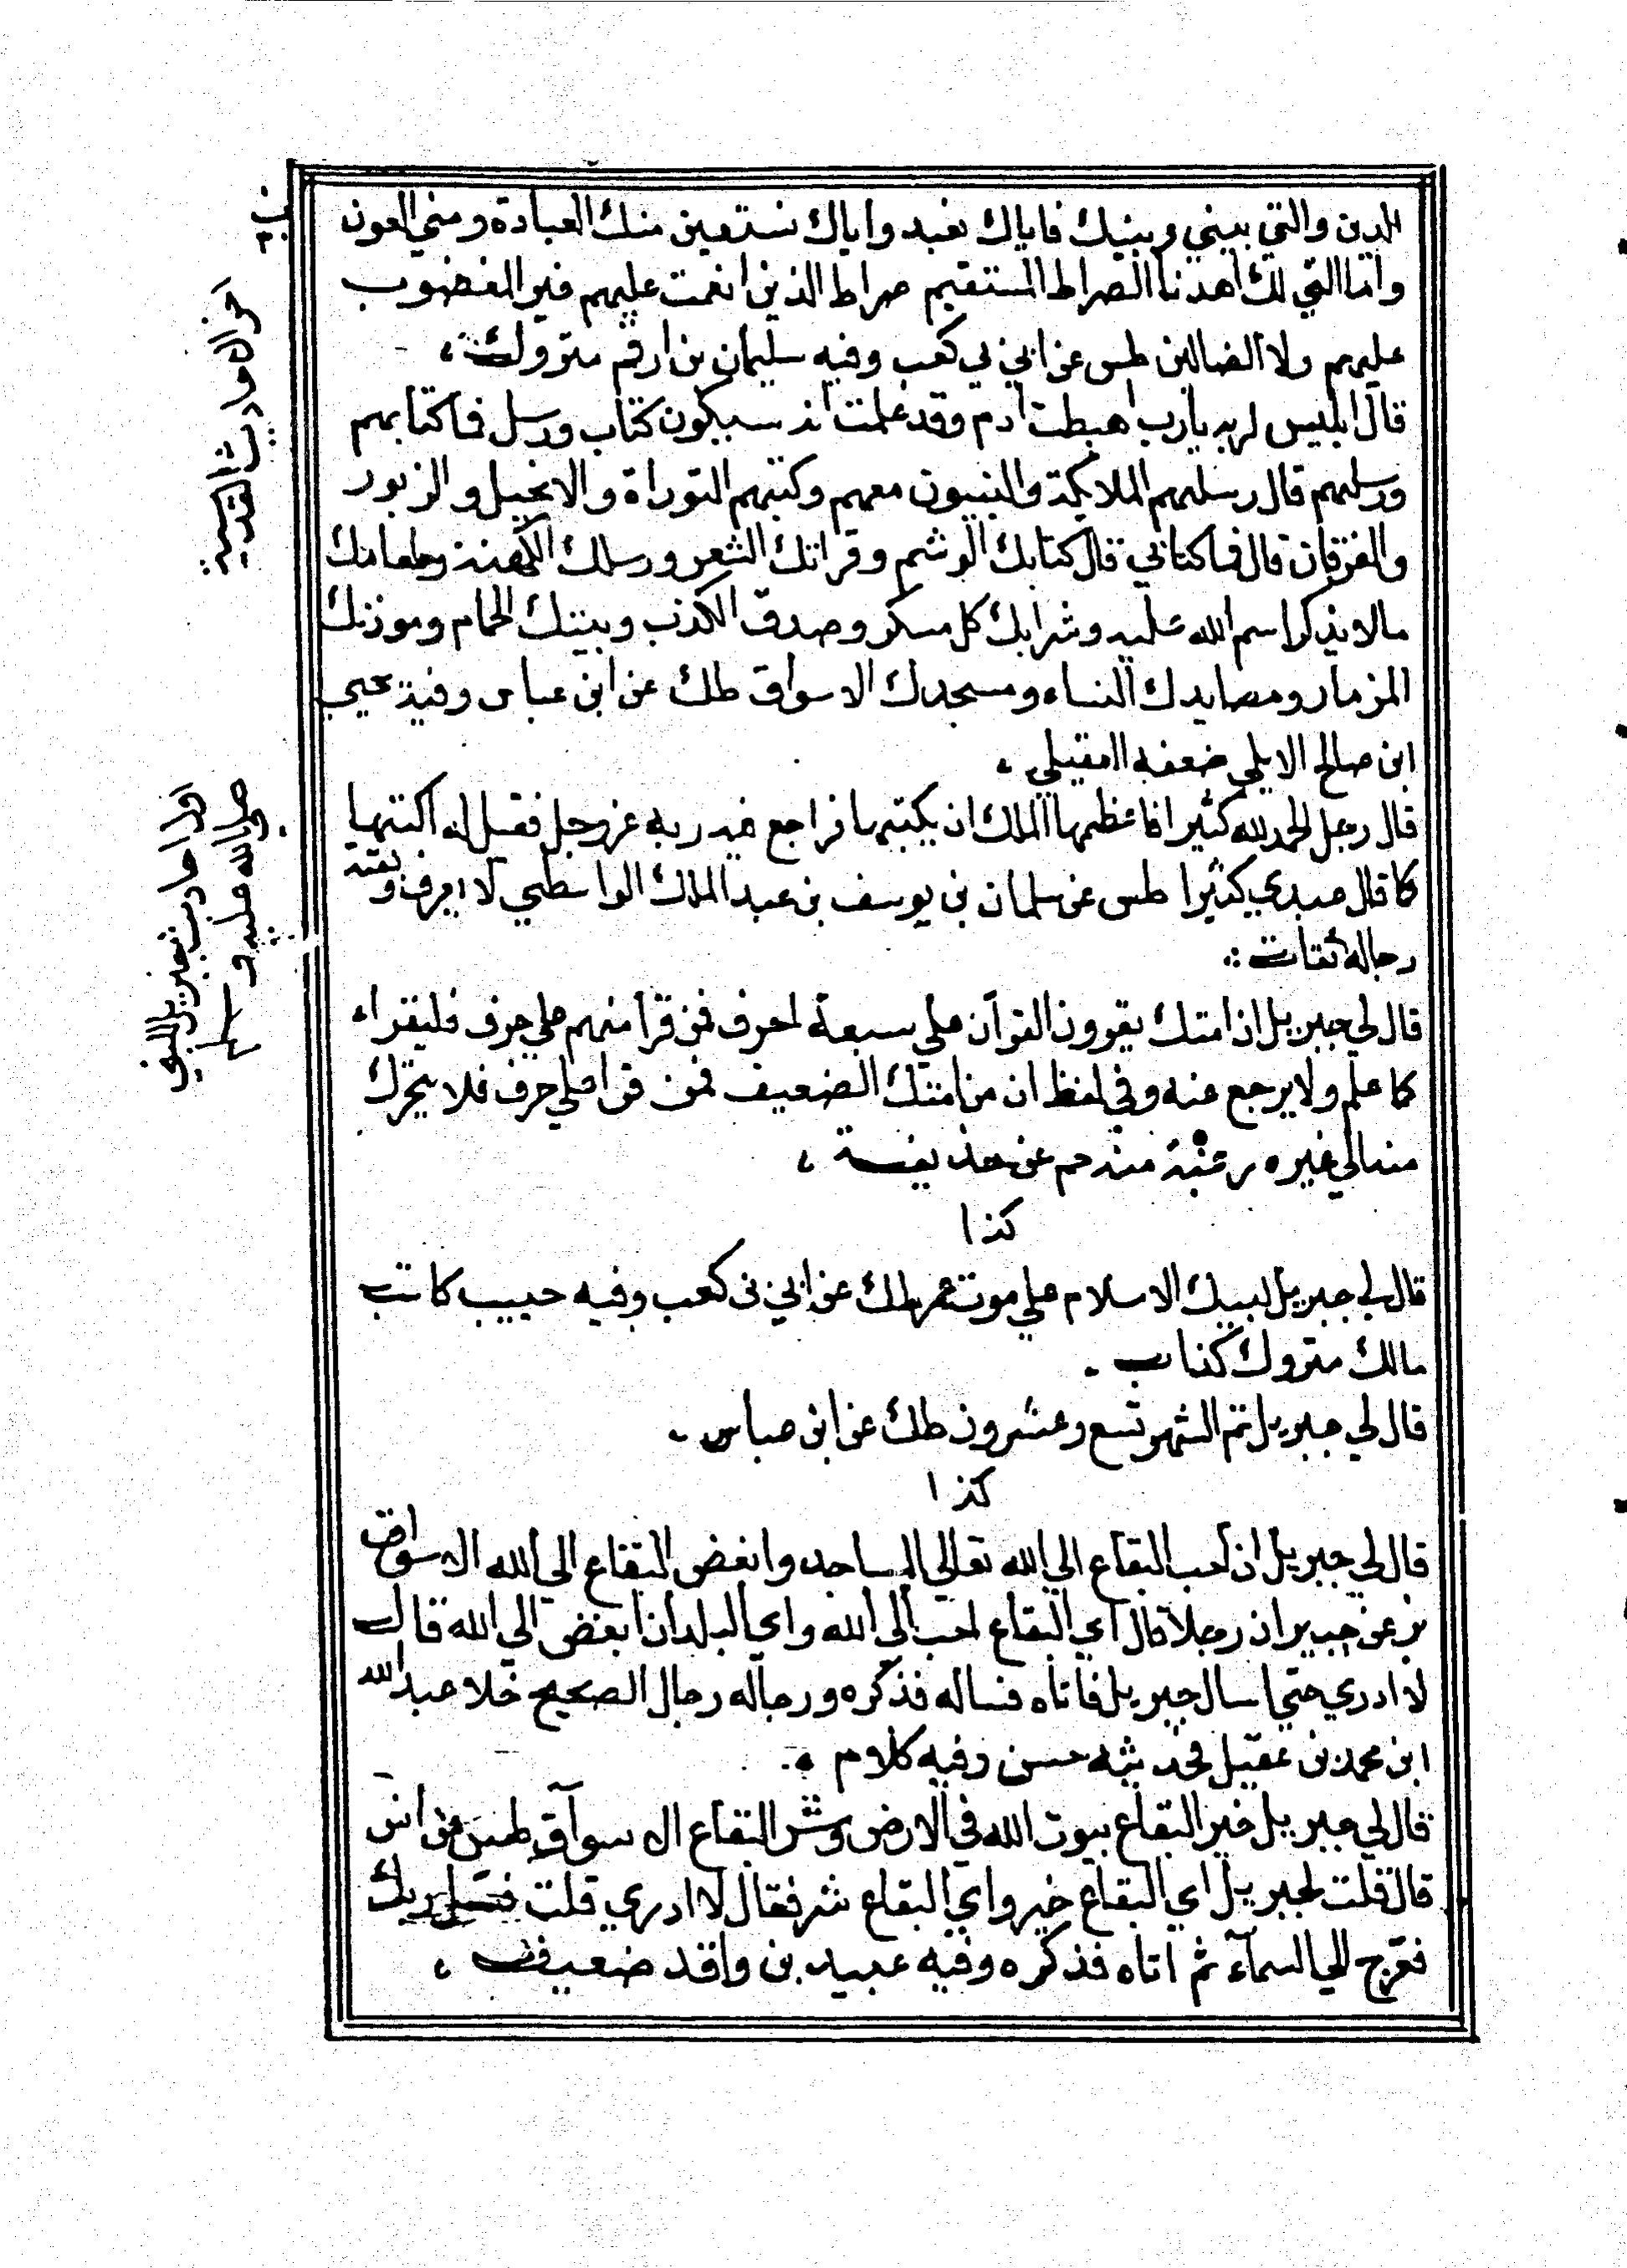 الدين والتي بيني وبينك فاياك نعبد واياك نستعين منك العبادة ومني العون
واما التي لك اهدنا الصراط المستقيم صراط الذين انعمت عليهم غير المغضوب
عليهم ولا الضالين طس عن ابي بن كعب وفيه سليمان بن ارقم متروك
قال ابليس لربه يارب اهبطت ادم وقد علمت انه سيكون كتاب ورسل فما كتابهم
ورسلهم قال رسلهم الملايكة والنبيون معهم وكتبهم التوراة والانجيل والزبور
والفرقان قال فما كتابي قال كتابك الوشم وقراتك الشعر ورسلك الكهنة وطعامك
مالا يذكر اسم الله عليه وشرابك كل مسكر وصدق الكذب وبيتك الحمام وموذنك
المزمار ومصايدك النساء ومسجدك الاسواق طك عن ابن عباس وفيه يحيى
ابن صالح الايلي ضعفه العقيلي
قال رجل الحمد لله كثيرا فاعظمها الملك ان يكتبها فراجع فيه ربه عز وجل فقيل له اكتبها
كما قال عبدي كثيرا طس عن سلمان بن يوسف بن عبد الملك الواسطي لا يعرف وبقية
رجاله ثقات
قال لي جبريل ان امتك يقرون القرآن علي سبعة احرف فمن قرا منهم علي حرف فليقراء
كما علم ولا يرجع عنه وفي لفظ ان من امتك الضعيف فمن قرا علي حرف فلا يتحرك
منه الي غيره رغبة عنه حم عن حذيفة
كذا
قال لي جبريل لبيك الاسلام علي موت عمر طك عن ابي بن كعب وفيه حبيب كاتب
مالك متروك كذاب
قال لي جبريل تم الشهر تسع وعشرون طك عن ابن عباس
كذا
قال لي جبريل ان احب البقاع الي الله تعالي المساجد وابغض البقاع الي الله الاسواق
بز عن جبير ان رجلا قال اي البقاع احب الي الله واي البلدان ابغض الي الله قال
لا ادري حتي اسال جبريل فاتاه فساله فذكره ورجاله رجال الصحيح خلا عبد الله
ابن محمد بن عقيل فحديثه حسن وفيه كلام
قال لي جبريل خير البقاع بيوت الله في الارض وشر البقاع الاسوآق طس عن انس
قال قلت لجبريل اي البقاع خير واي البقاع شر فقال لا ادري قلت فسل ربك
فعرج الي السمآء ثم اتاه فذكره وفيه عبيد بن واقد ضعيف
اخر الاحاديث القدسية
اول احاديث جبريل للنبي
صلي الله عليه وسلم